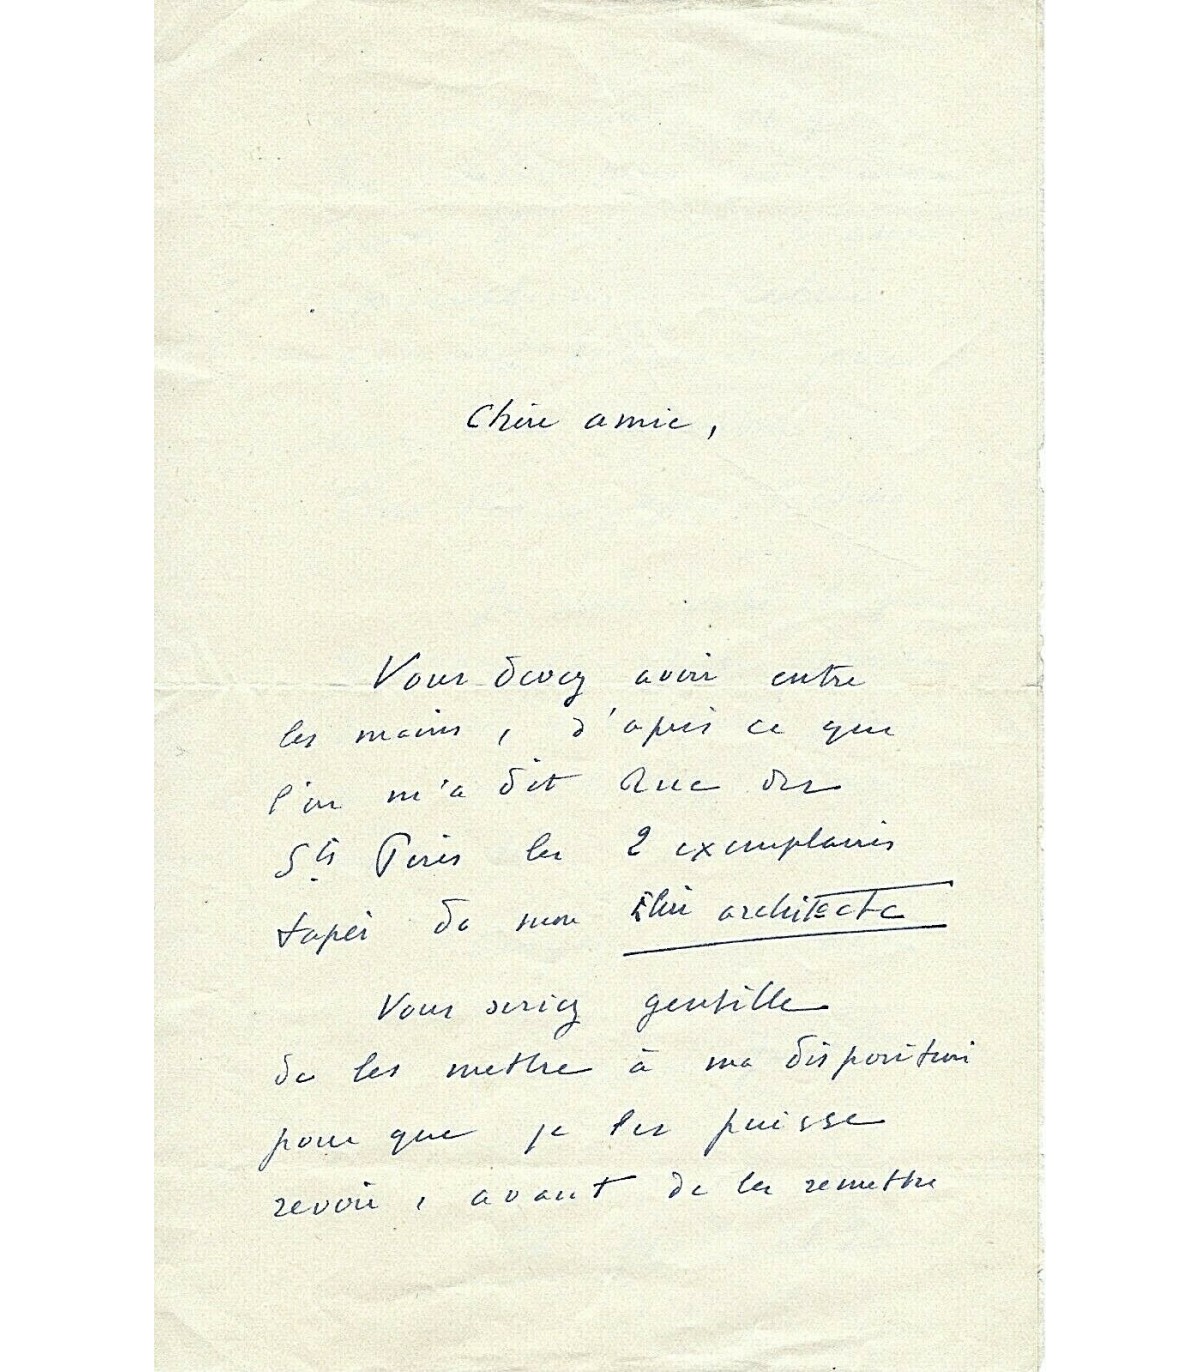 Chère amie,
Vous devez avoir entre
les mains, d'après ce que
l'on m'a dit Rue des
Sts Pères les 2 exemplaires
tapés de mon architecte
Vous seriez gentille
de les mettre à ma disposition
pour que je les puisse
revoir, avant de les remettre